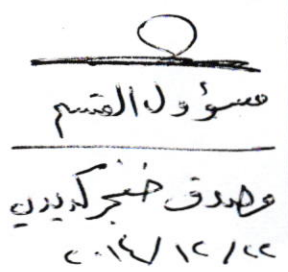 مسؤول القسم
مصدق خنجر كديدي
٢٠١٤/١٢/٢٢